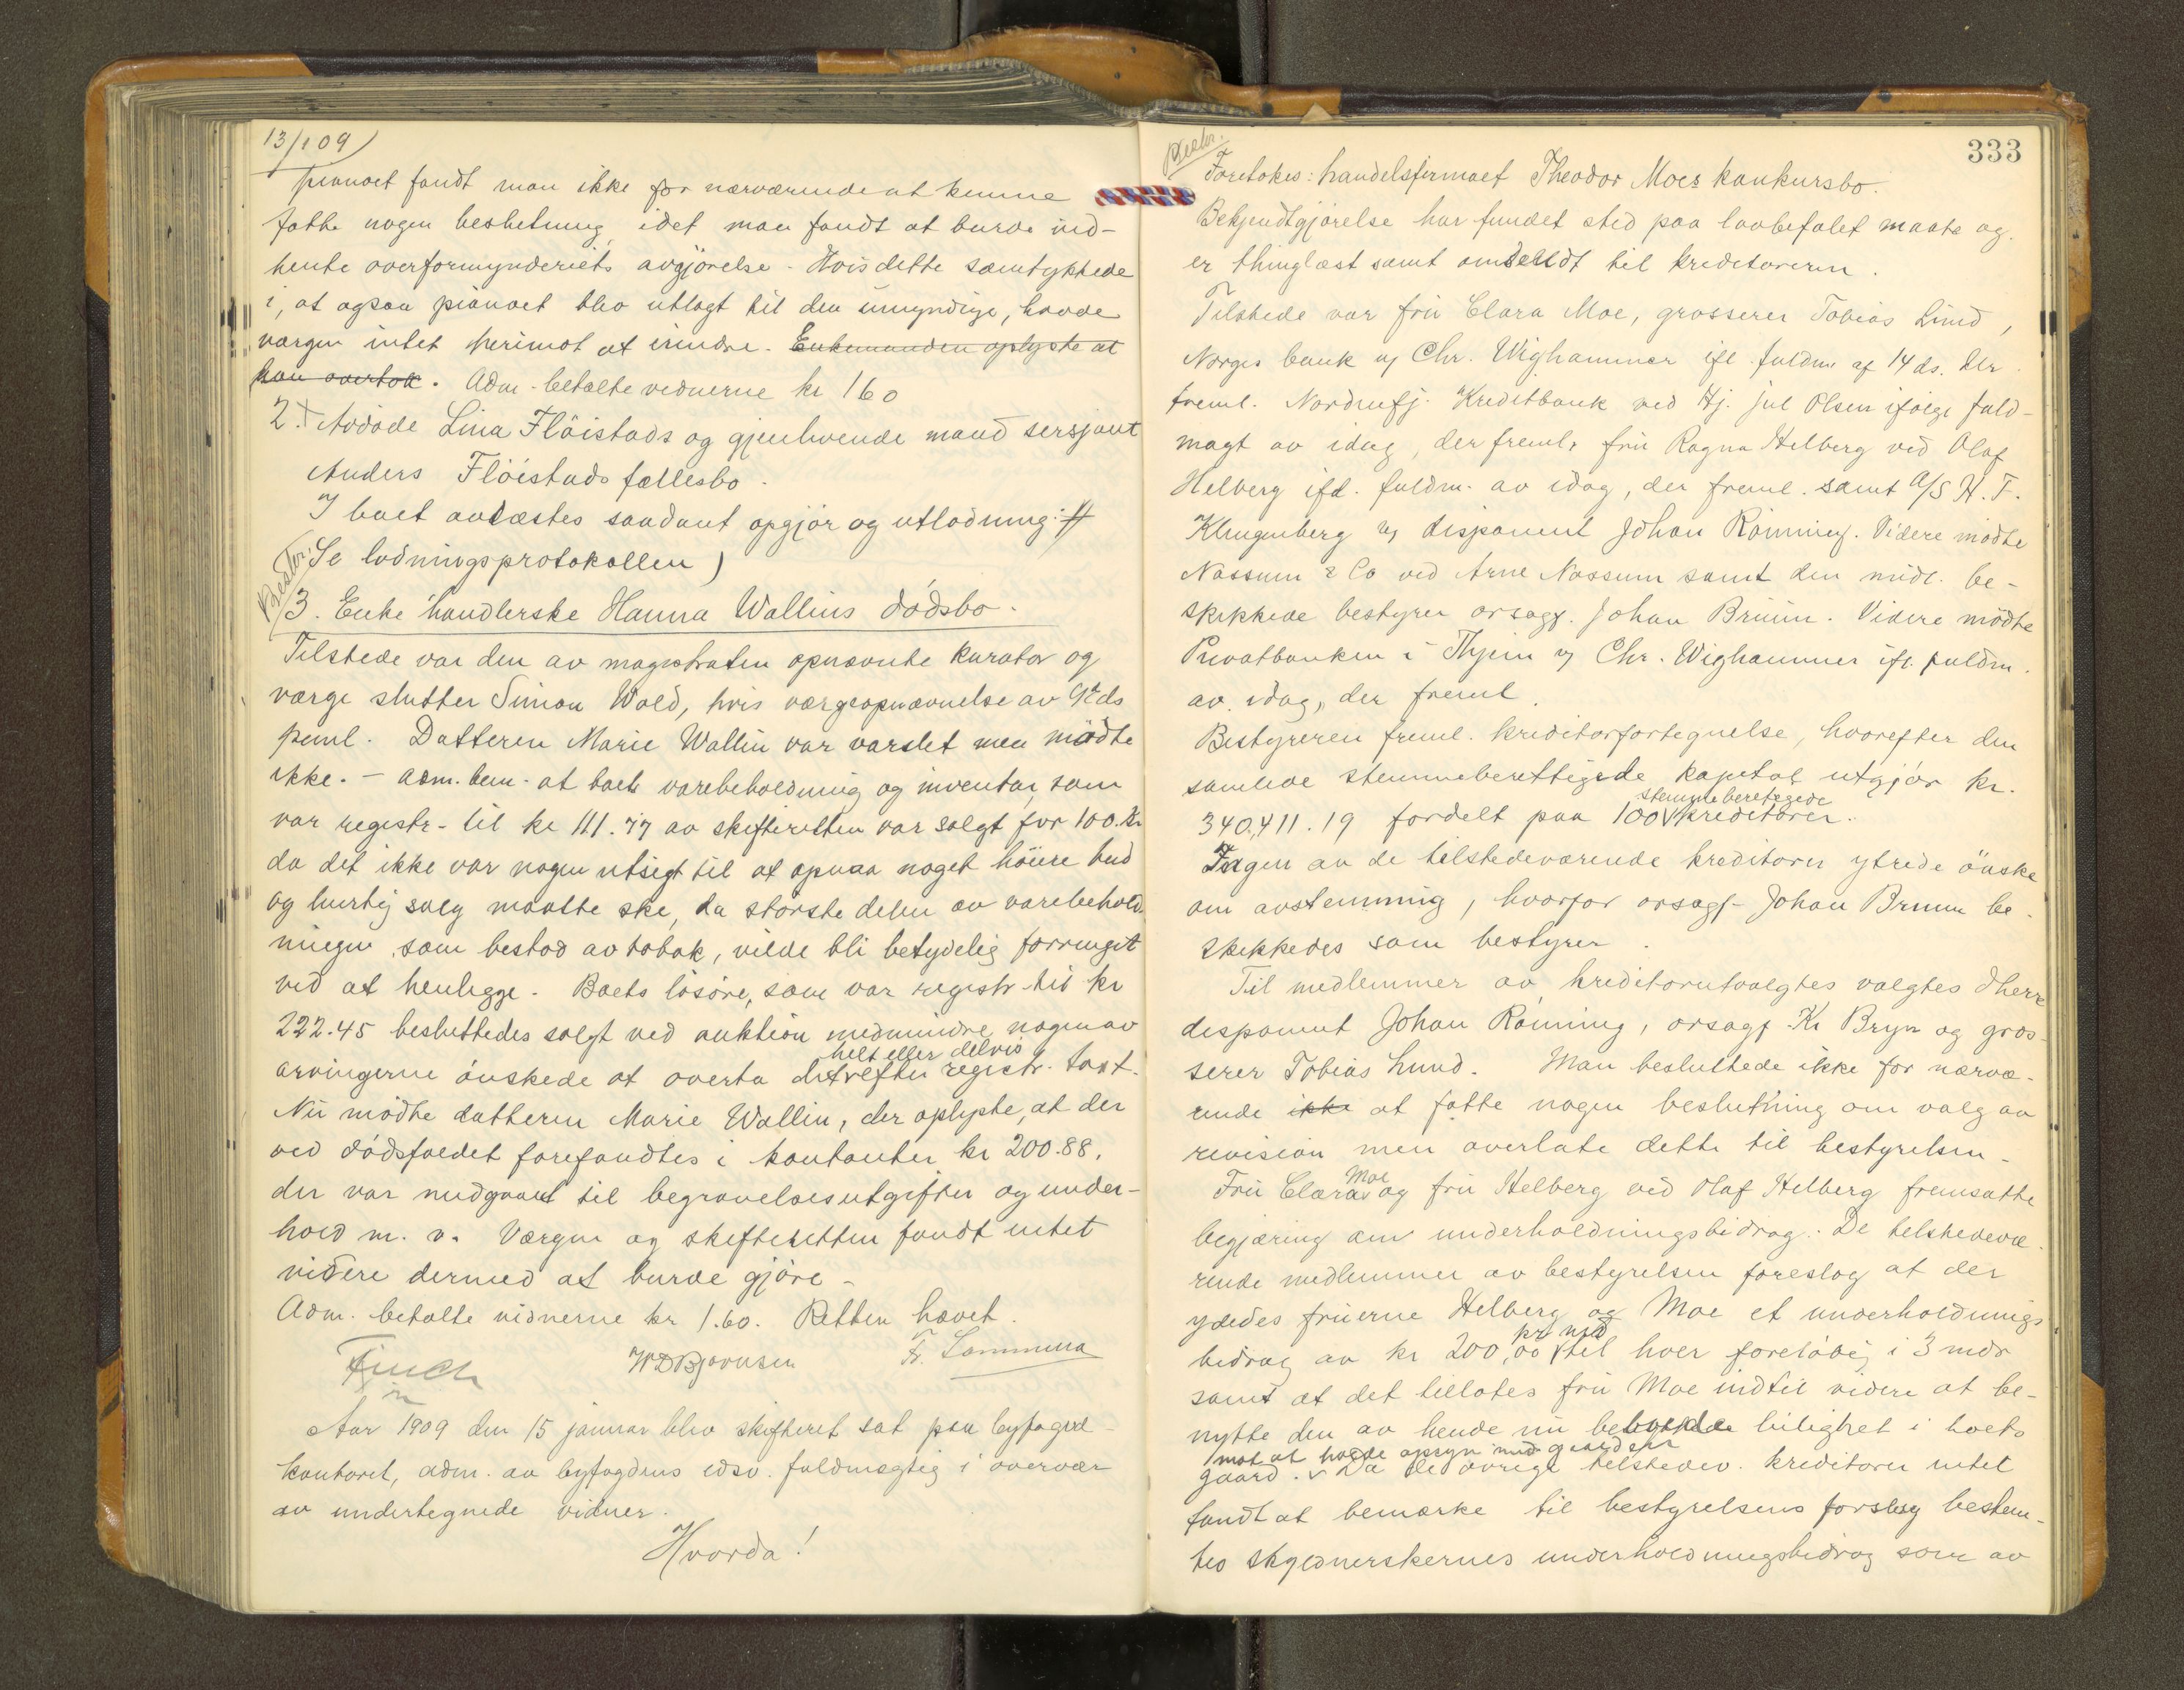 13/1 09
pianoet fandt man ikke for nærværende at kunne
fatte nogen beslutning, idet man fandt at burde ind-
hente overformynderiets avgjörelse. Hvis dette samtykkede
i, at ogsaa pianoet blev utlagt til den umyndige, havde
værgen intet herimot at erindre. Enkemanden oplyste at
han overtok. Adm. betalte vidnerne kr 1 60
2. Avdöde Lina Flöistads og gjenlevende mand sersjant
Anders Flöistads fællesbo.
I boet avlæstes saadant opgjör og utlodning:
Se lodningsprotokollen)
Bestor.
3. Enke handlerske Hanna Wallins dödsbo.
Tilstede var den av magistraten opnævnte kurator og
værge slutter Simon Wold, hvis værgeopnævnelse av 9de ds
freml. Datteren Marie Wallin var varslet men mödte
ikke. – Adm. bem. at boets varebeholdning og inventar, som
var registr. til kr 111.77 av skifteretten var solgt for 100. Kr
da det ikke var nogen utsigt til at opnaa noget höiere bud
og hurtig salg maatte ske, da störste delen av varebehold-
ningen, som bestod av tobak, vilde bli betydelig forringet
ved at henligge. Boets lösöre, som var registr. til kr
222.45 besluttedes solgt ved auktion medmindre nogen av
helt eller delvis
arvingerne önskede at overta det efter registr. taxt.
Nu mödte datteren Marie Wallin, der oplyste, at der
ved dödsfaldet forefandtes i kontanter kr 200.88,
der var medgaaet til begravelsesutgifter og under-
hold m. v. Værgen og skifteretten fandt intet
videre dermed at burde gjöre.
Adm. betalte vidnerne kr 1.60. Retten hævet.
Finch W D Bjørnsen Fr. Lammena
Aar 1909 den 15 januar blev skifteret sat paa byfogd-
kontoret, adm. av byfogdens edsv. fuldmægtig i overvær
av undertegnede vidner.
Hvorda!
333
Bestor.
Foretokes: handelsfirmaet Theodor Moes konkursbo.
Bekjendtgjörelse har fundet sted paa lovbefalet maate og
er thinglæst samt omsendt til kreditorerne.
Tilstede var fru Clara Moe, grosserer Tobias Lund,
Norges bank v/ Chr. Wighammer ifl fuldm af 14 ds. der
freml. Nordenfj. Kreditbank ved Hj. Jul Olsen ifölge fuld-
magt av idag, der freml, fru Ragna Helberg ved Olaf
Helberg ifl. fuldm. av idag, der freml. samt A/S H. F.
Klingenberg v/ disponent Johan Rönning. Videre mödte
Nossum & Co ved Arne Nossum samt den midl. be-
skikkede bestyrer orsagf. Johan Bruun. Videre mödte
Privatbanken i Thjem v/ Chr. Wighammer ifl. fuldm.
av idag, der freml.
Bestyreren freml. kreditorfortegnelse, hvorefter den
samlede stemmeberettigede kapital utgjör kr.
stemmeberettigede
340,411.19 fordelt paa 100 kreditorer.
Ingen av de tilstedeværende kreditorer ytrede önske
om avstemning, hvorfor orsagf. Johan Bruun be-
skikkedes som bestyrer.
Til medlemmer av kreditorutvalgtes valgtes dherr
disponent Johan Rönning, orsagf. Kr Bryn og gros-
serer Tobias Lund. Man besluttede ikke for nærvæ-
rende ikke at fatte nogen beslutning om valg av
revision men overlate dette til bestyrelsen.
Moe
Fru Clara og fru Helberg ved Olaf Helberg fremsatte
begjæring om underholdningsbidrag. De tilstedevæ-
rende medlemmer av bestyrelsen foreslog at der
ydedes fruerne Helberg og Moe et underholdnings
pr md
bidrag av kr 200,00 til hver foreløbig i 3 mdr
samt at det tillotes fru Moe indtil videre at be-
nytte den av hende nu bebodde leilighet i boets
mot at holde opsyn med gaarden
gaard. Da de övrige tilstedev. kreditorer intet
fandt at bemerke til bestyrelsens forslag bestem-
tes skyldnerskernes underholdningsbidrag som av